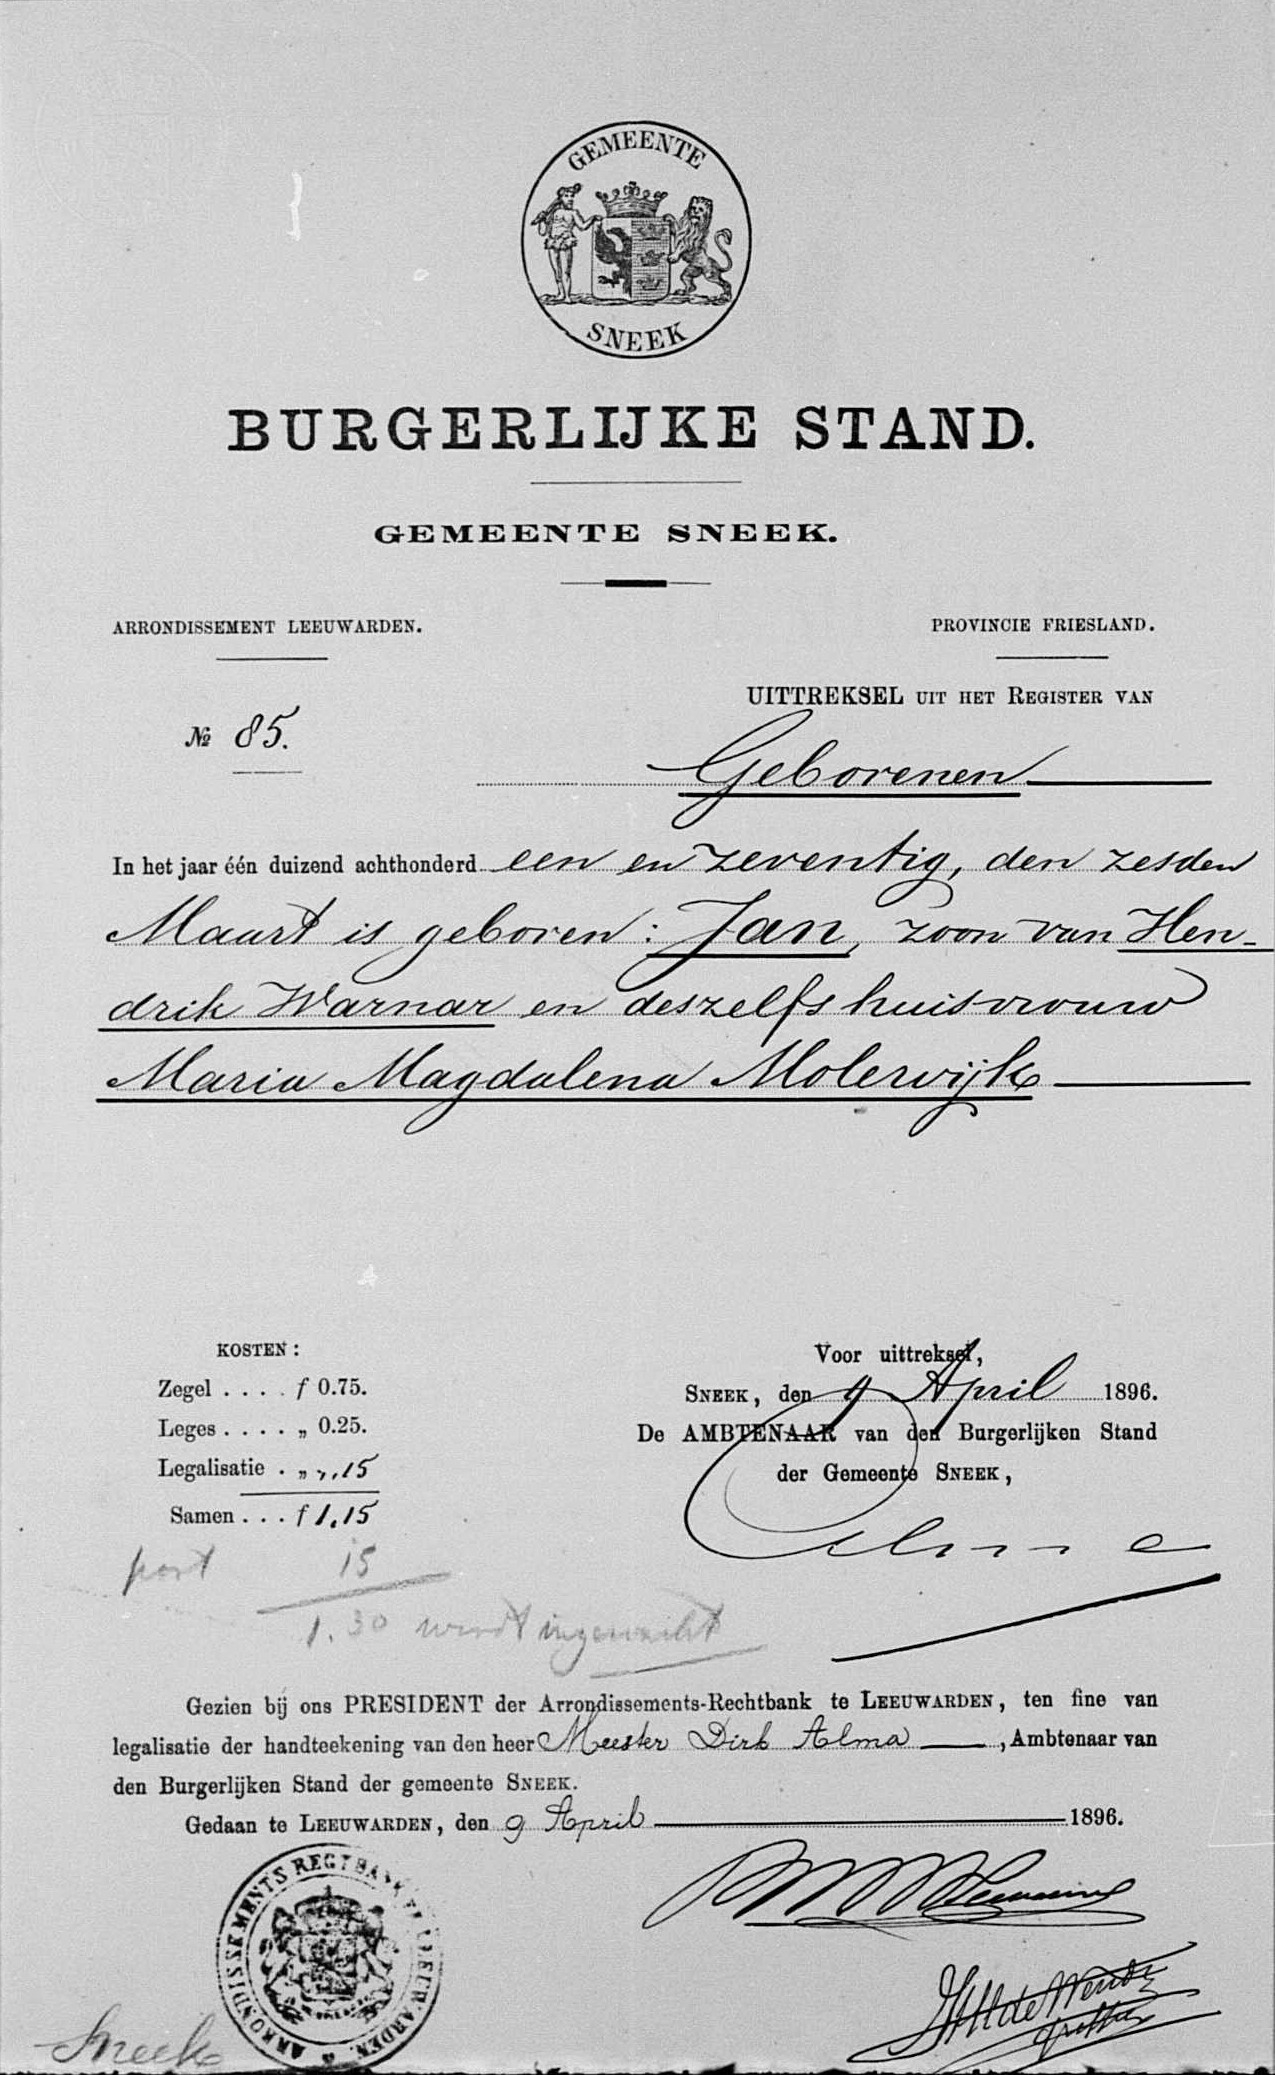 GEMEENTE
SNEEK
BURGERLIJKE STAND.
GEMEENTE SNEEK.
ARRONDISSEMENT LEEUWARDEN.
PROVINCIE FRIESLAND.
UITTREKSEL UIT HET REGISTER VAN
№ 85.
Geborenen
In het jaar één duizend achthonderd een en zeventig, den zesden
Maart is geboren: Jan, zoon van Hen-
drik Warnar en deszelfs huisvrouw
Maria Magdalena Molewijk
KOSTEN:
Zegel .... f 0.75.
Leges .... „ 0.25.
Legalisatie . „ „.15
Samen ... f 1.15
port 15
1.30 wordt ingewacht
Voor uittreksel,
SNEEK, den 9 April 1896.
De AMBTENAAR van den Burgerlijken Stand
der Gemeente SNEEK,
Alma
Gezien bij ons PRESIDENT der Arrondissements-Rechtbank te LEEUWARDEN, ten fine van
legalisatie der handteekening van den heer Meester Dirk Alma, Ambtenaar van
den Burgerlijken Stand der gemeente SNEEK.
Gedaan te LEEUWARDEN, den 9 April 1896.
ARRONDISSEMENTS REGTBANK TE LEEUWARDEN
griffier
Sneek